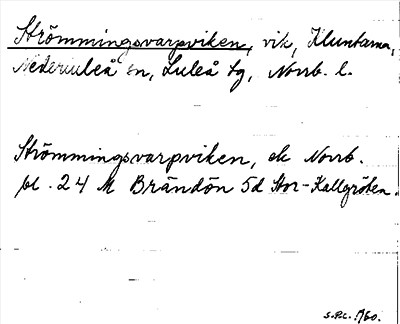 Strömmingsvarpviken, vik, Kluntarna,
Nederluleå sn, Luleå tg, Norrb. l.
Strömmingsvarpviken, ek Norrb.
bl. 24 M Brändön 5d Stor-Kallgrötan.
S.R.C. 1960.